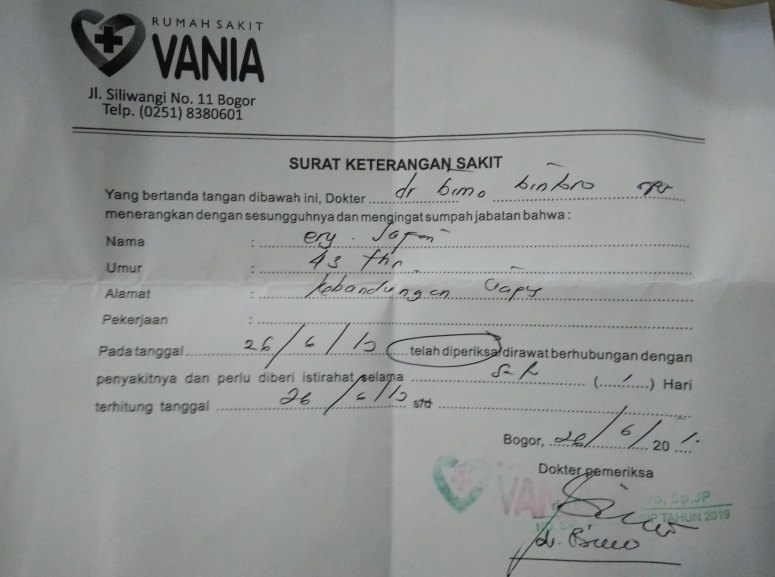 RUMAH SAKIT
VANIA
Jl. Siliwangi No. 11 Bogor
Telp. (0251) 8380601
SURAT KETERANGAN SAKIT
Yang bertanda tangan dibawah ini, Dokter dr bimo bintoro
menerangkan dengan sesungguhnya dan mengingat sumpah jabatan bahwa :
Nama : ery
Umur : 43 thn
Alamat : kobandungan
Pekerjaan :
Pada tanggal 26/6/ telah diperiksa/dirawat berhubungan dengan
penyakitnya dan perlu diberi istirahat selama (1) Hari
terhitung tanggal 26/6/ s/d
Bogor, 26/6/20
Dokter pemeriksa
Sp.JP
TAHUN 2019
dr. Bimo